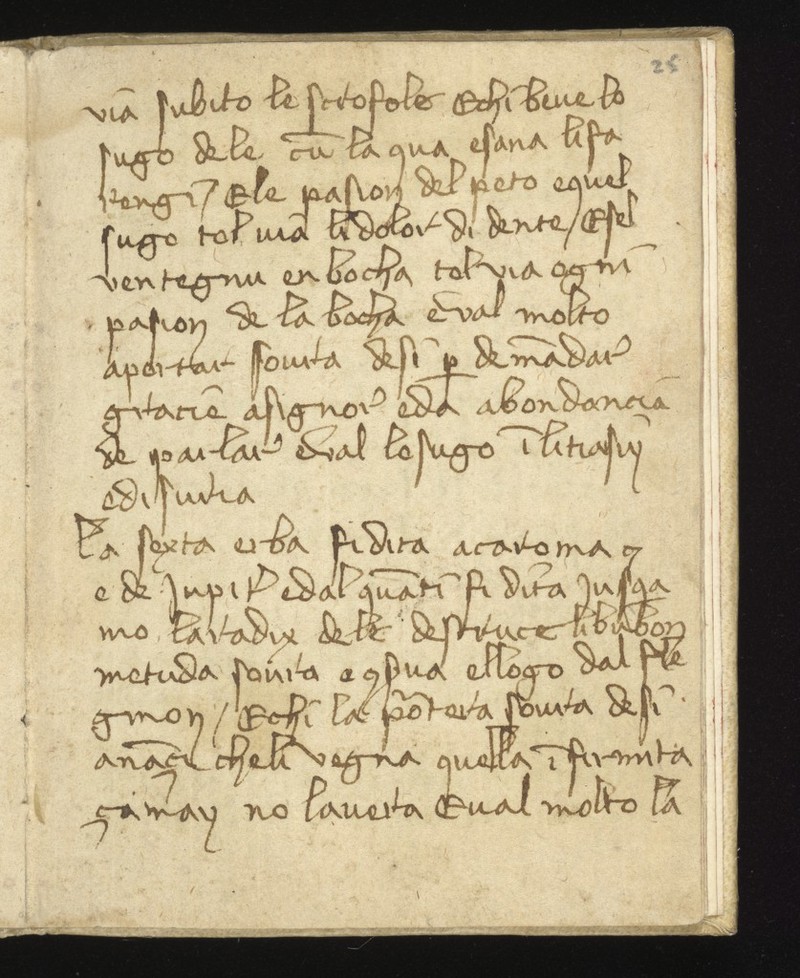 25
viā subito le scrofole Echī beue lo
sugo de le cū la qua e sana li sa
rengi / Ele pasion del peto equel
sugo tol uiā li dolor di dente / Esel
uen tegnu en bocha tol via ognī
pasion de la bocha ēval molto
aportar soura desī p̱ demādar
graciē asignor edā abondanciā
de parlar e val lo sugo ī litiasij
edisuria
La sexta erba si dita acaroma
e de Jupit̄ edal quātī si dita Jusq̄a
mo la radix de le destruce li bubon
metuda soura e ꝯserua el logo dal fle
gmon / Echī la portera soura desī
anāci cheli vegna quella īfirmita
çamay no lauera Eual molto lā